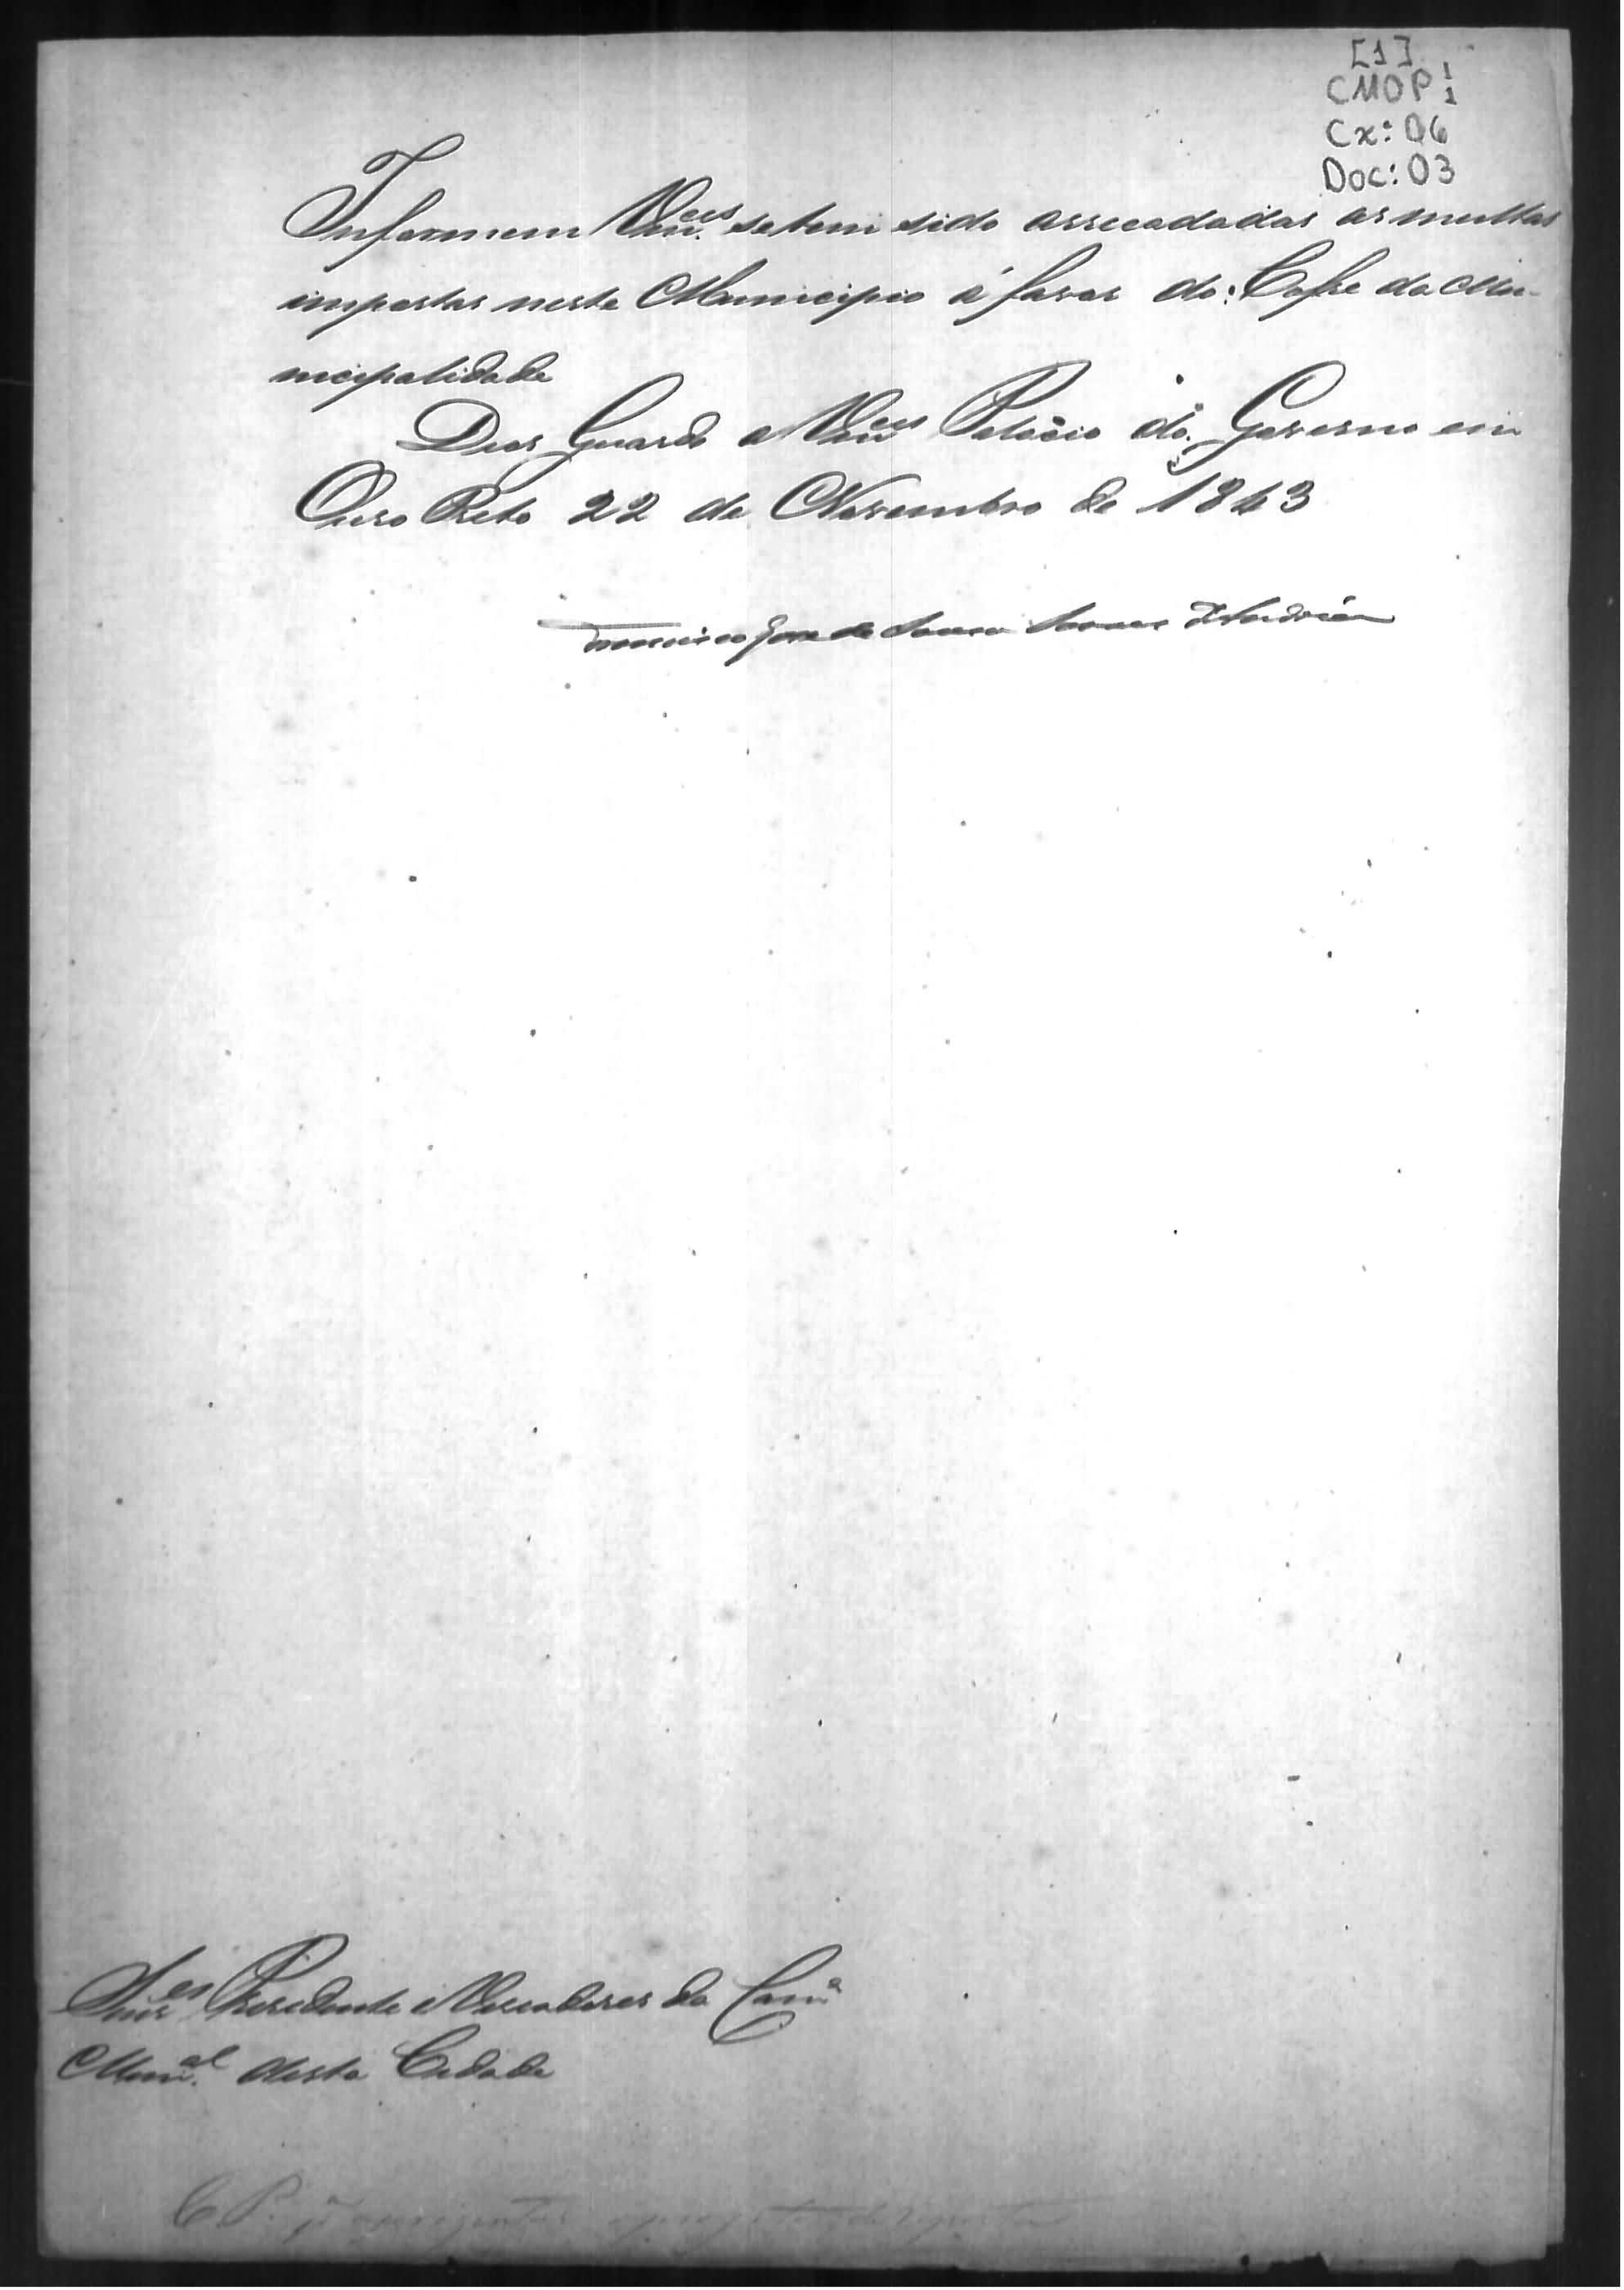 [1]
CMOP 1
1
Cx: 06
Doc: 03
Informem Vm.ces se tem sido arrecadadas as multas
impostas neste Municipio á favor do Cofre da Mu-
nicipalidade
Deos Guarde a Vm.ces Palacio do Governo em
Ouro Preto 22 de Novembro de 1843
Francisco Jose de Souza Soares d'Andréa
Snr.es Presidente e Vereadores da Cam.a
Mun.al desta Cidade
C P. p.a aprezentar o projecto de reposta